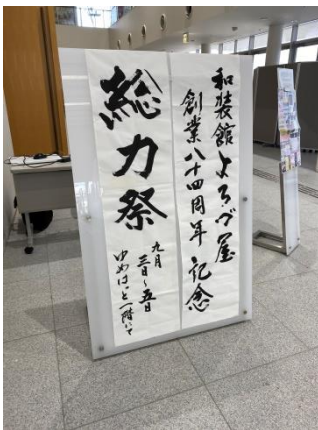 和装館よろづ屋
創業八十四周年 記念
総力祭
九月
三日~五日
ゆめはっと一階にて